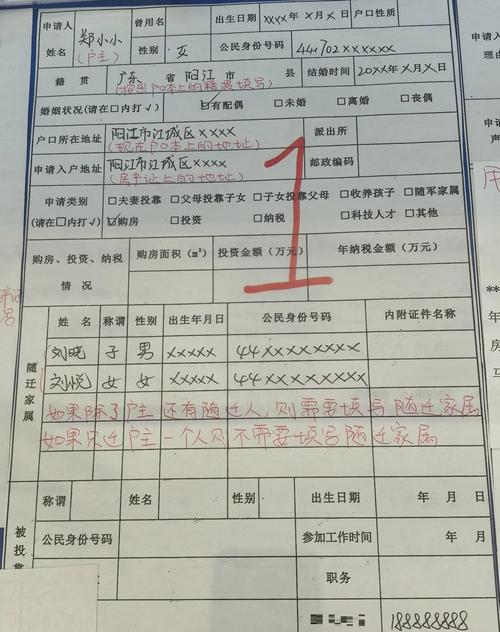 申请人姓名 郑小小 (户主) 曾用名 出生日期 xxxx年X月X日 户口性质
性别 女 公民身份号码 44702xxxxxx
籍贯 广东省阳江市 县 结婚时间 20xx年X月X日
(按户口本上的籍贯填写)
婚姻状况(请在□内打√) ☑有配偶 □未婚 □离婚 □丧偶
户口所在地址 阳江市江城区xxxx 派出所
(现在户口本上的地址)
申请入户地址 阳江市江城区xxxx 邮政编码
(房产证上的地址)
1
申请类别 □夫妻投靠 □父母投靠子女 □子女投靠父母 □收养孩子 □随军家属
(请在□内打√) ☑购房 □投资 □纳税 □科技人才 □其他
购房、投资、纳税情况 购房面积(m²) 投资金额(万元) 年纳税金额(万元)
随迁家属 姓名 称谓 性别 出生年月日 公民身份号码 内附证件名称
刘晓 子 男 xxxxx 44xxxxxxxx
刘悦 女 女 xxxxx 44xxxxxxxxx
如果除了户主还有随迁人,则需要填写随迁家属
如果只迁户主一个人则不需要填写随迁家属
称谓 姓名 性别 出生日期 年 月 日
被投靠 公民身份号码 参加工作时间 年 月
职务
188888888